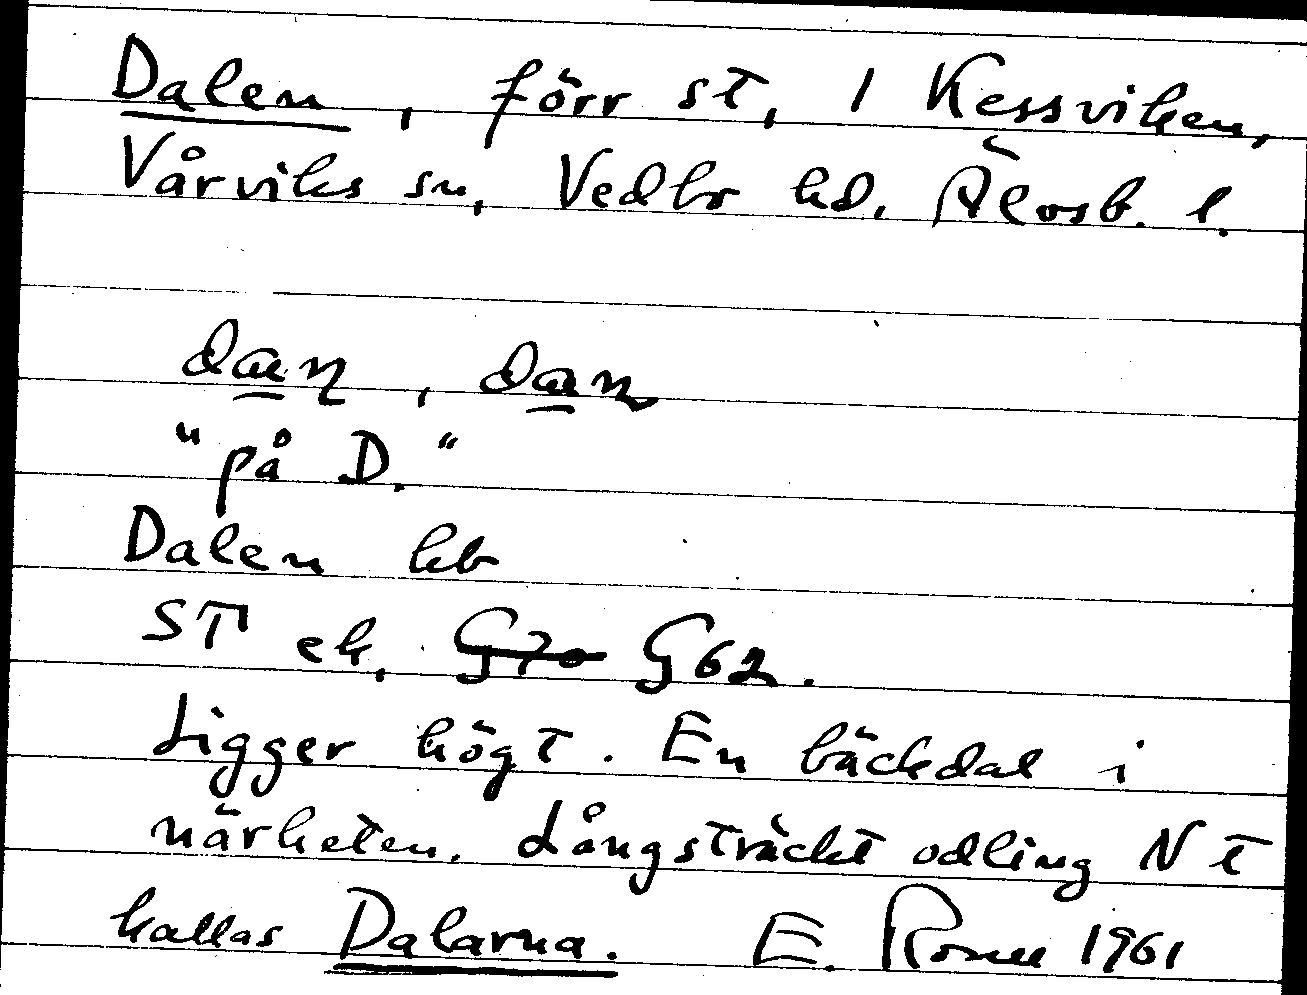 Dalen, förr st, 1 Kessviken,
Vårviks sn, Vedbo hd. Älvsb. l.
"på D."
Dalen hb
ST ek, G70 G62.
Ligger högt. En bäckdal i
närheten. Långsträckt odling N t
kallas Dalarna. E. 1961